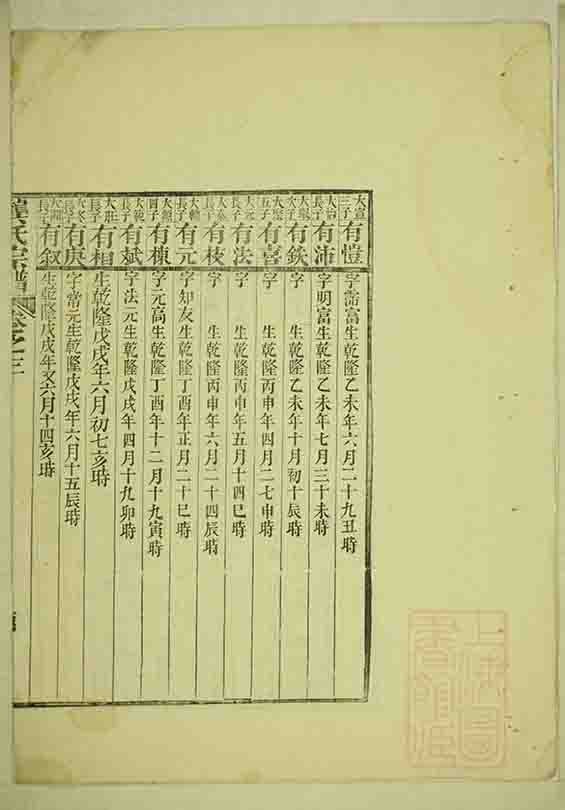 大宣三子有愷字霈富生乾隆乙未年六月二十九丑時
大治長子有沛字明富生乾隆乙未年七月三十未時
次子有鉃字生乾隆乙未年十月初十辰時
五子有喜字生乾隆丙申年四月二七申時
長子有法字生乾隆丙申年五月十四巳時
長子有枝字生乾隆丙申年六月二十四辰時
長子有元字知友生乾隆丁酉年正月二十巳時
有棟字元高生乾隆丁酉年十二月十九寅時
長子有斌字法元生乾隆戊戌年四月十九卯時
大班長子有相生乾隆戊戌年六月初七亥時
長子有庚字常元生乾隆戊戌年六月十五辰時
長子有叙生乾隆戊戌年又六月十四亥時
氏宗譜 卷之三
上海圖書館